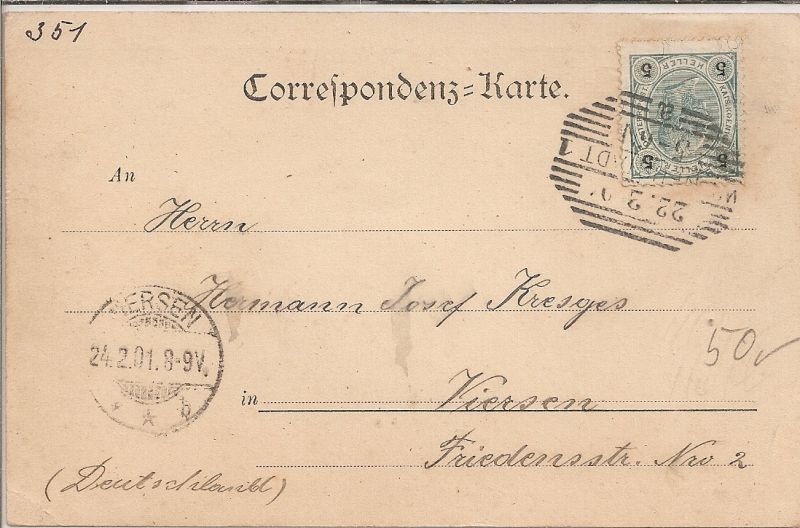 351
Correſpondenz=Karte.
5 HELLER 5
5 HELLER 5
22.2.0
An
Herrn
Hermann Josef Kresges
VIERSEN
24.2.01.8-9V.
* * b
50
in Viersen
Friedensstr. Nro 2
(Deutschland)